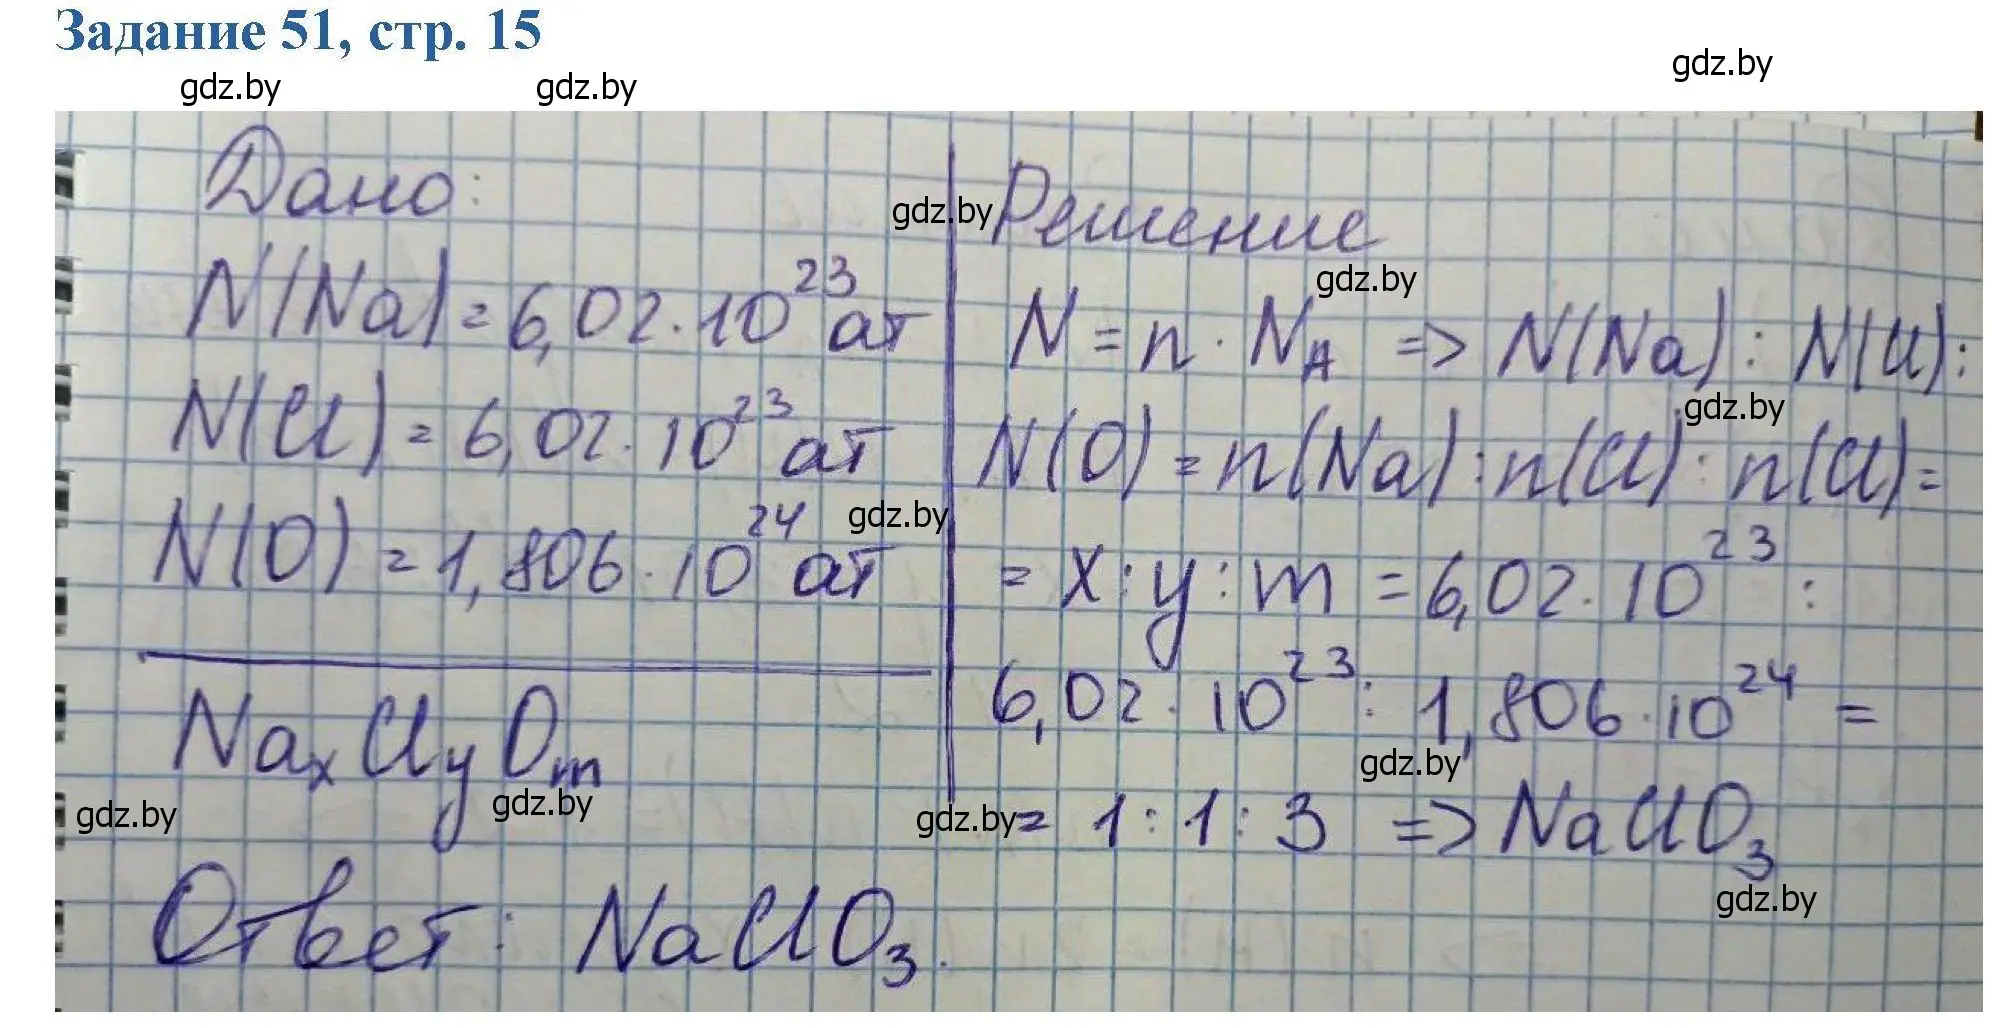 Задание 51, стр. 15
gdz.by
gdz.by
gdz.by
Дано:
N(Na) = 6,02·10²³ ат
N(Cl) = 6,02·10²³ ат
N(O) = 1,806·10²⁴ ат
gdz.by
NaₓClᵧOₘ
gdz.by
gdz.by
gdz.by
Решение
gdz.by
N = n · N_A => N(Na) : N(Cl) :
gdz.by
N(O) = n(Na) : n(Cl) : n(Cl) =
= x : y : m = 6,02·10²³ :
6,02·10²³ : 1,806·10²⁴ =
gdz.by
gdz.by
= 1 : 1 : 3 => NaClO₃
gdz.by
Ответ: NaClO₃.